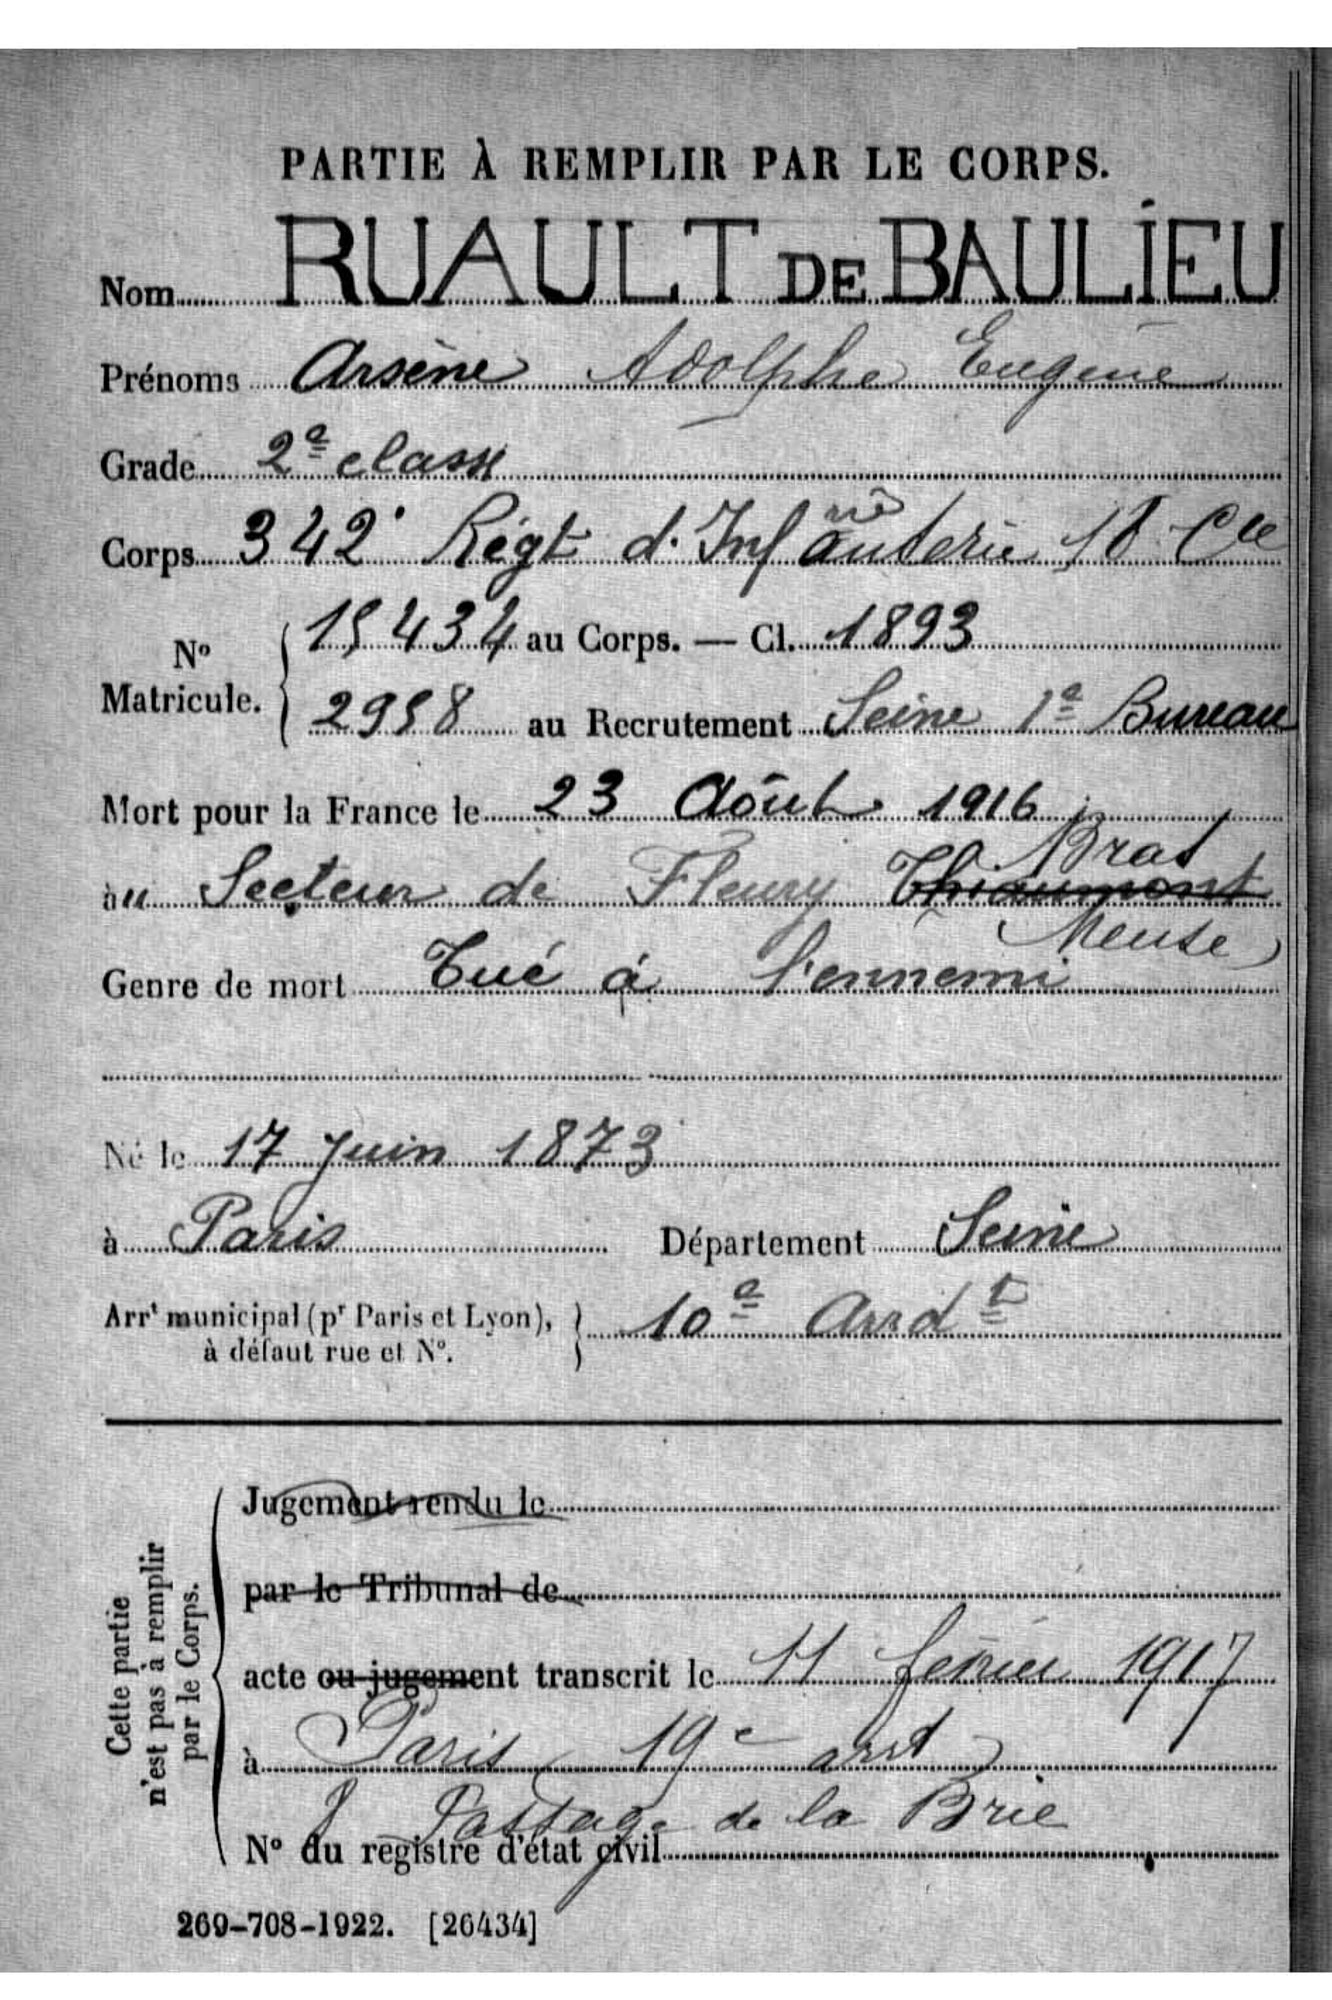 PARTIE À REMPLIR PAR LE CORPS.
Nom RUAULT DE BAULIEU
Prénoms Arsène Adolphe Eugène
Grade 2e classe
Corps 342e Régt d'Infanterie 18e Cie
No Matricule. 15434 au Corps. — Cl. 1893
2958 au Recrutement Seine 1e Bureau
Mort pour la France le 23 Août 1916
Bras
au Secteur de Fleury Thiaumont
Meuse
Genre de mort Tué à l'ennemi
Né le 17 Juin 1873
à Paris Département Seine
Arrt municipal (pr Paris et Lyon), à défaut rue et No. 10e Arrdt
Cette partie n'est pas à remplir par le Corps.
Jugement rendu le
par le Tribunal de
acte ou jugement transcrit le 11 février 1917
à Paris 19e arrt
8 Passage de la Brie
No du registre d'état civil
269-708-1922. [26434]